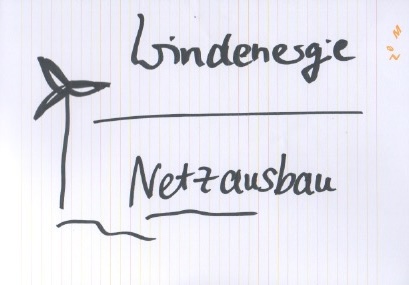 Windenergie
Netzausbau